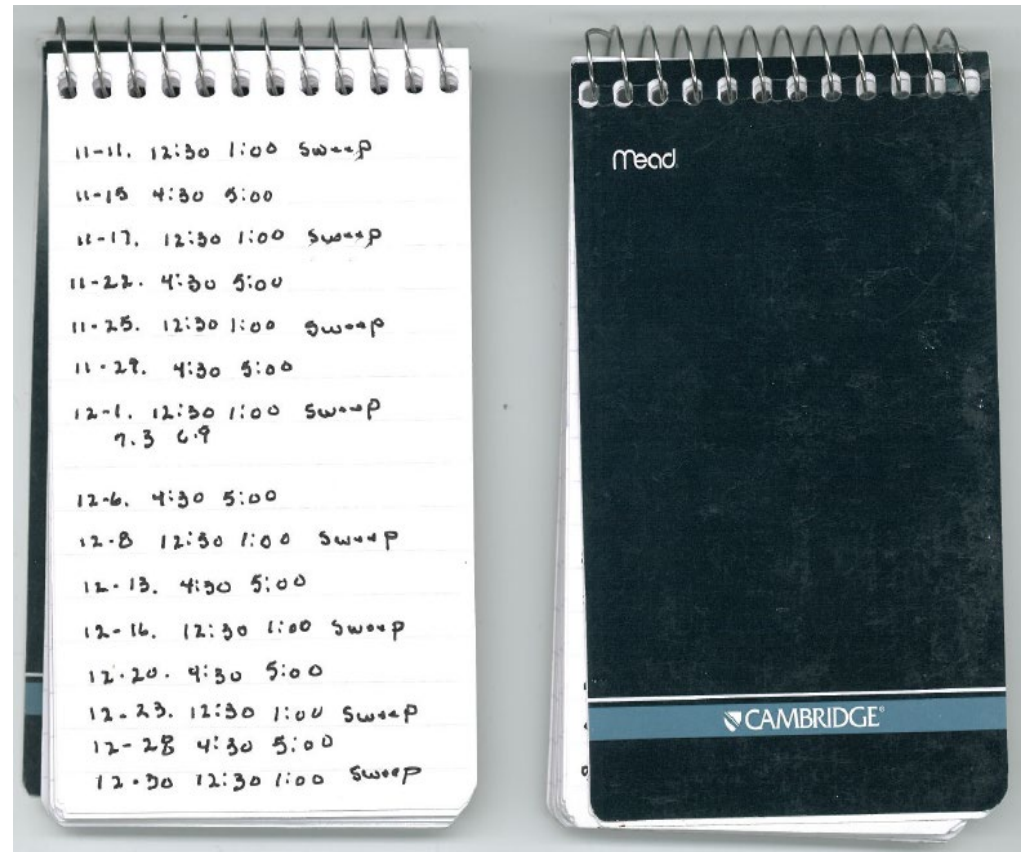 11-11. 12:30 1:00 Sweep
11-15 4:30 5:00
11-17. 12:30 1:00 Sweep
11-22. 4:30 5:00
11-25. 12:30 1:00 Sweep
11-29. 4:30 5:00
12-1. 12:30 1:00 Sweep
7.3 6.9
12-6. 4:30 5:00
12-8 12:30 1:00 Sweep
12-13. 4:30 5:00
12-16. 12:30 1:00 Sweep
12-20. 4:30 5:00
12-23. 12:30 1:00 Sweep
12-28 4:30 5:00
12-30 12:30 1:00 Sweep
Mead
CAMBRIDGE®